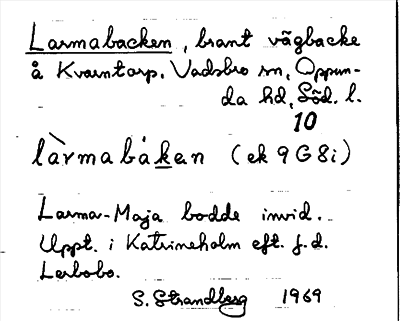 Larmabacken, brant vägbacke
å Kvarntorp, Vadsbro sn, Oppun-
da hd, Söd. l.
10
làrmabákan (ek 9G8i)
Larma-Maja bodde invid.
Uppt. i Katrineholm eft. f.d.
Lerbobo.
S. Strandberg 1969